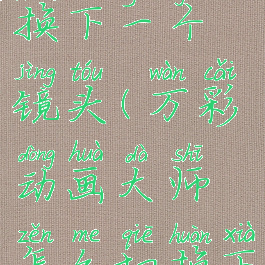 换下一个
jìng tóu wàn cǎi
镜头（万彩
dòng huà dà shī
动画大师
zěn me qiē huàn xià
怎么切换下